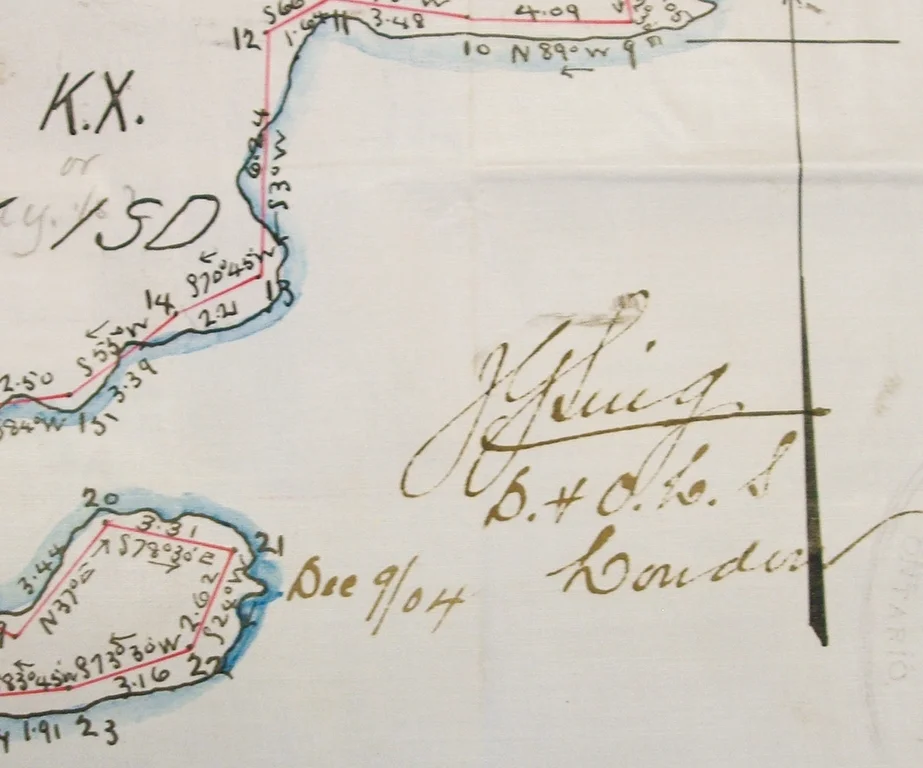 12
1.64
3.48
4.09
10 N 89° W 9
K.X.
or
6.24
S 3° W
ISD
S 70° 45' W
13
14
2.21
S 53° W
3.39
2.50
S 84° W 15
20
3.31
S 78° 30' E
21
3.44
N 37° E
2.62
S 24° W
S 73° 30' W
83° 45' W
3.16
22
1.91 23
D. & O. L. S
London
Dec 9/04
ONTARIO